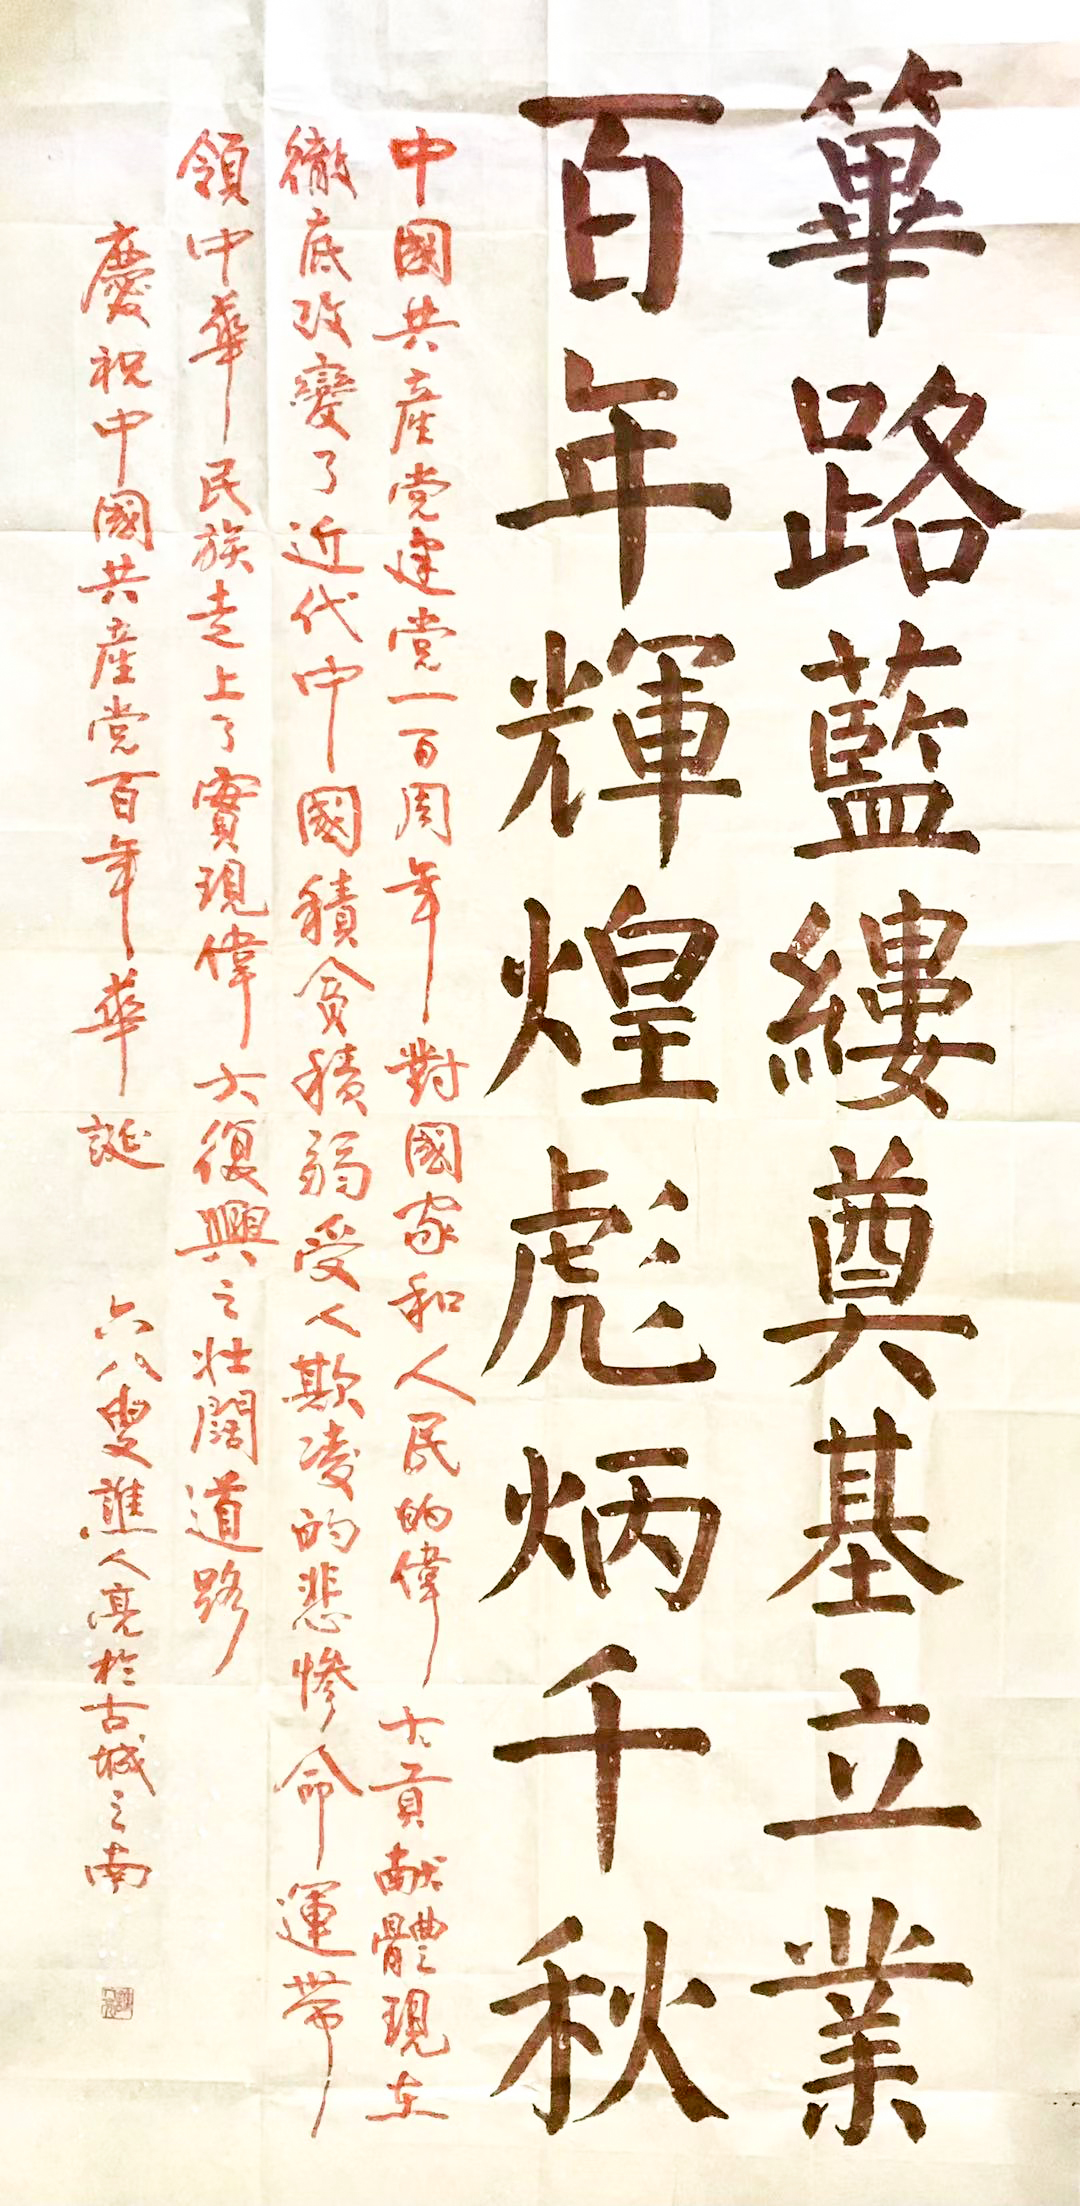 篳路藍縷奠基立業
百年輝煌彪炳千秋
中國共產党建党一百周年對國家和人民的偉大貢献體現在
徹底改變了近代中國積貧積弱受人欺凌的悲慘命運帶
領中華民族走上了實現偉大復興之壯闊道路
慶祝中國共產党百年華誕 六八叟譙人亮於古城之南